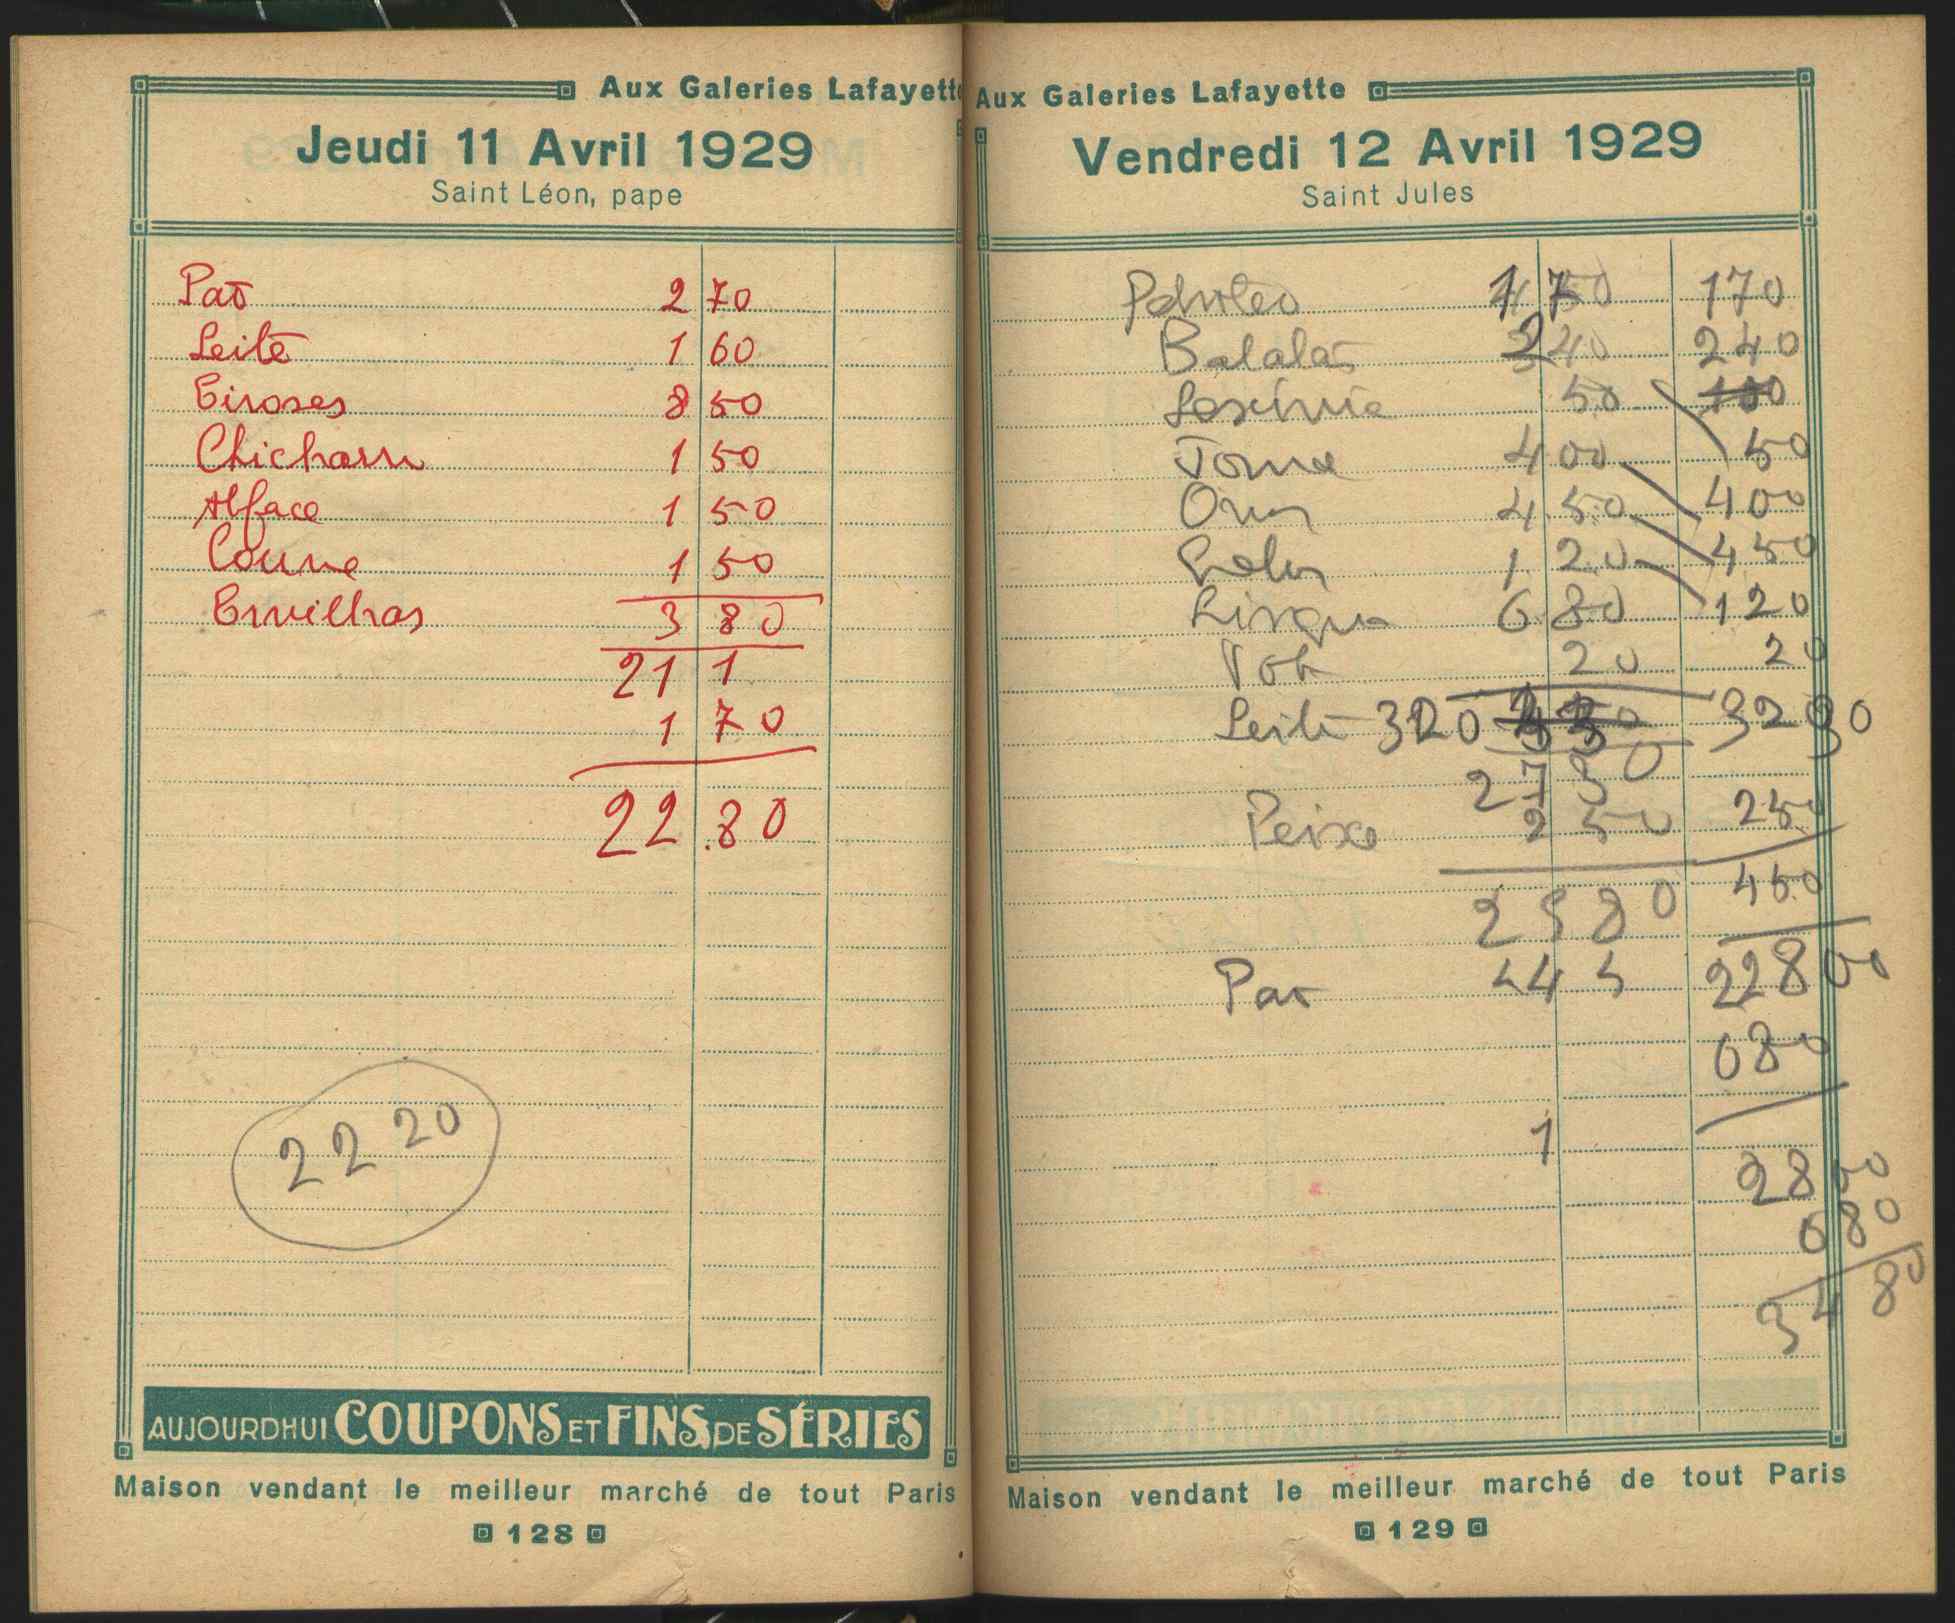 Aux Galeries Lafayette
Jeudi 11 Avril 1929
Saint Léon, pape
Pao 2 70
Leite 1 60
Eiroses 8 50
Chicharru 1 50
Alface 1 50
Couve 1 50
Ervilhas 3 80
21 1
1 70
22.80
22 20
AUJOURDHUI COUPONS ET FINS DE SÉRIES
Maison vendant le meilleur marché de tout Paris
128
Aux Galeries Lafayette
Vendredi 12 Avril 1929
Saint Jules
170
Batatas 2 40 240
50 100
50
4 00 400
4.50 450
1.20 120
6.80
20 20
Leite 320
27 50
Peixe 2 50 250
450
Pao
22800
680
1
2850
680
3480
Maison vendant le meilleur marché de tout Paris
129